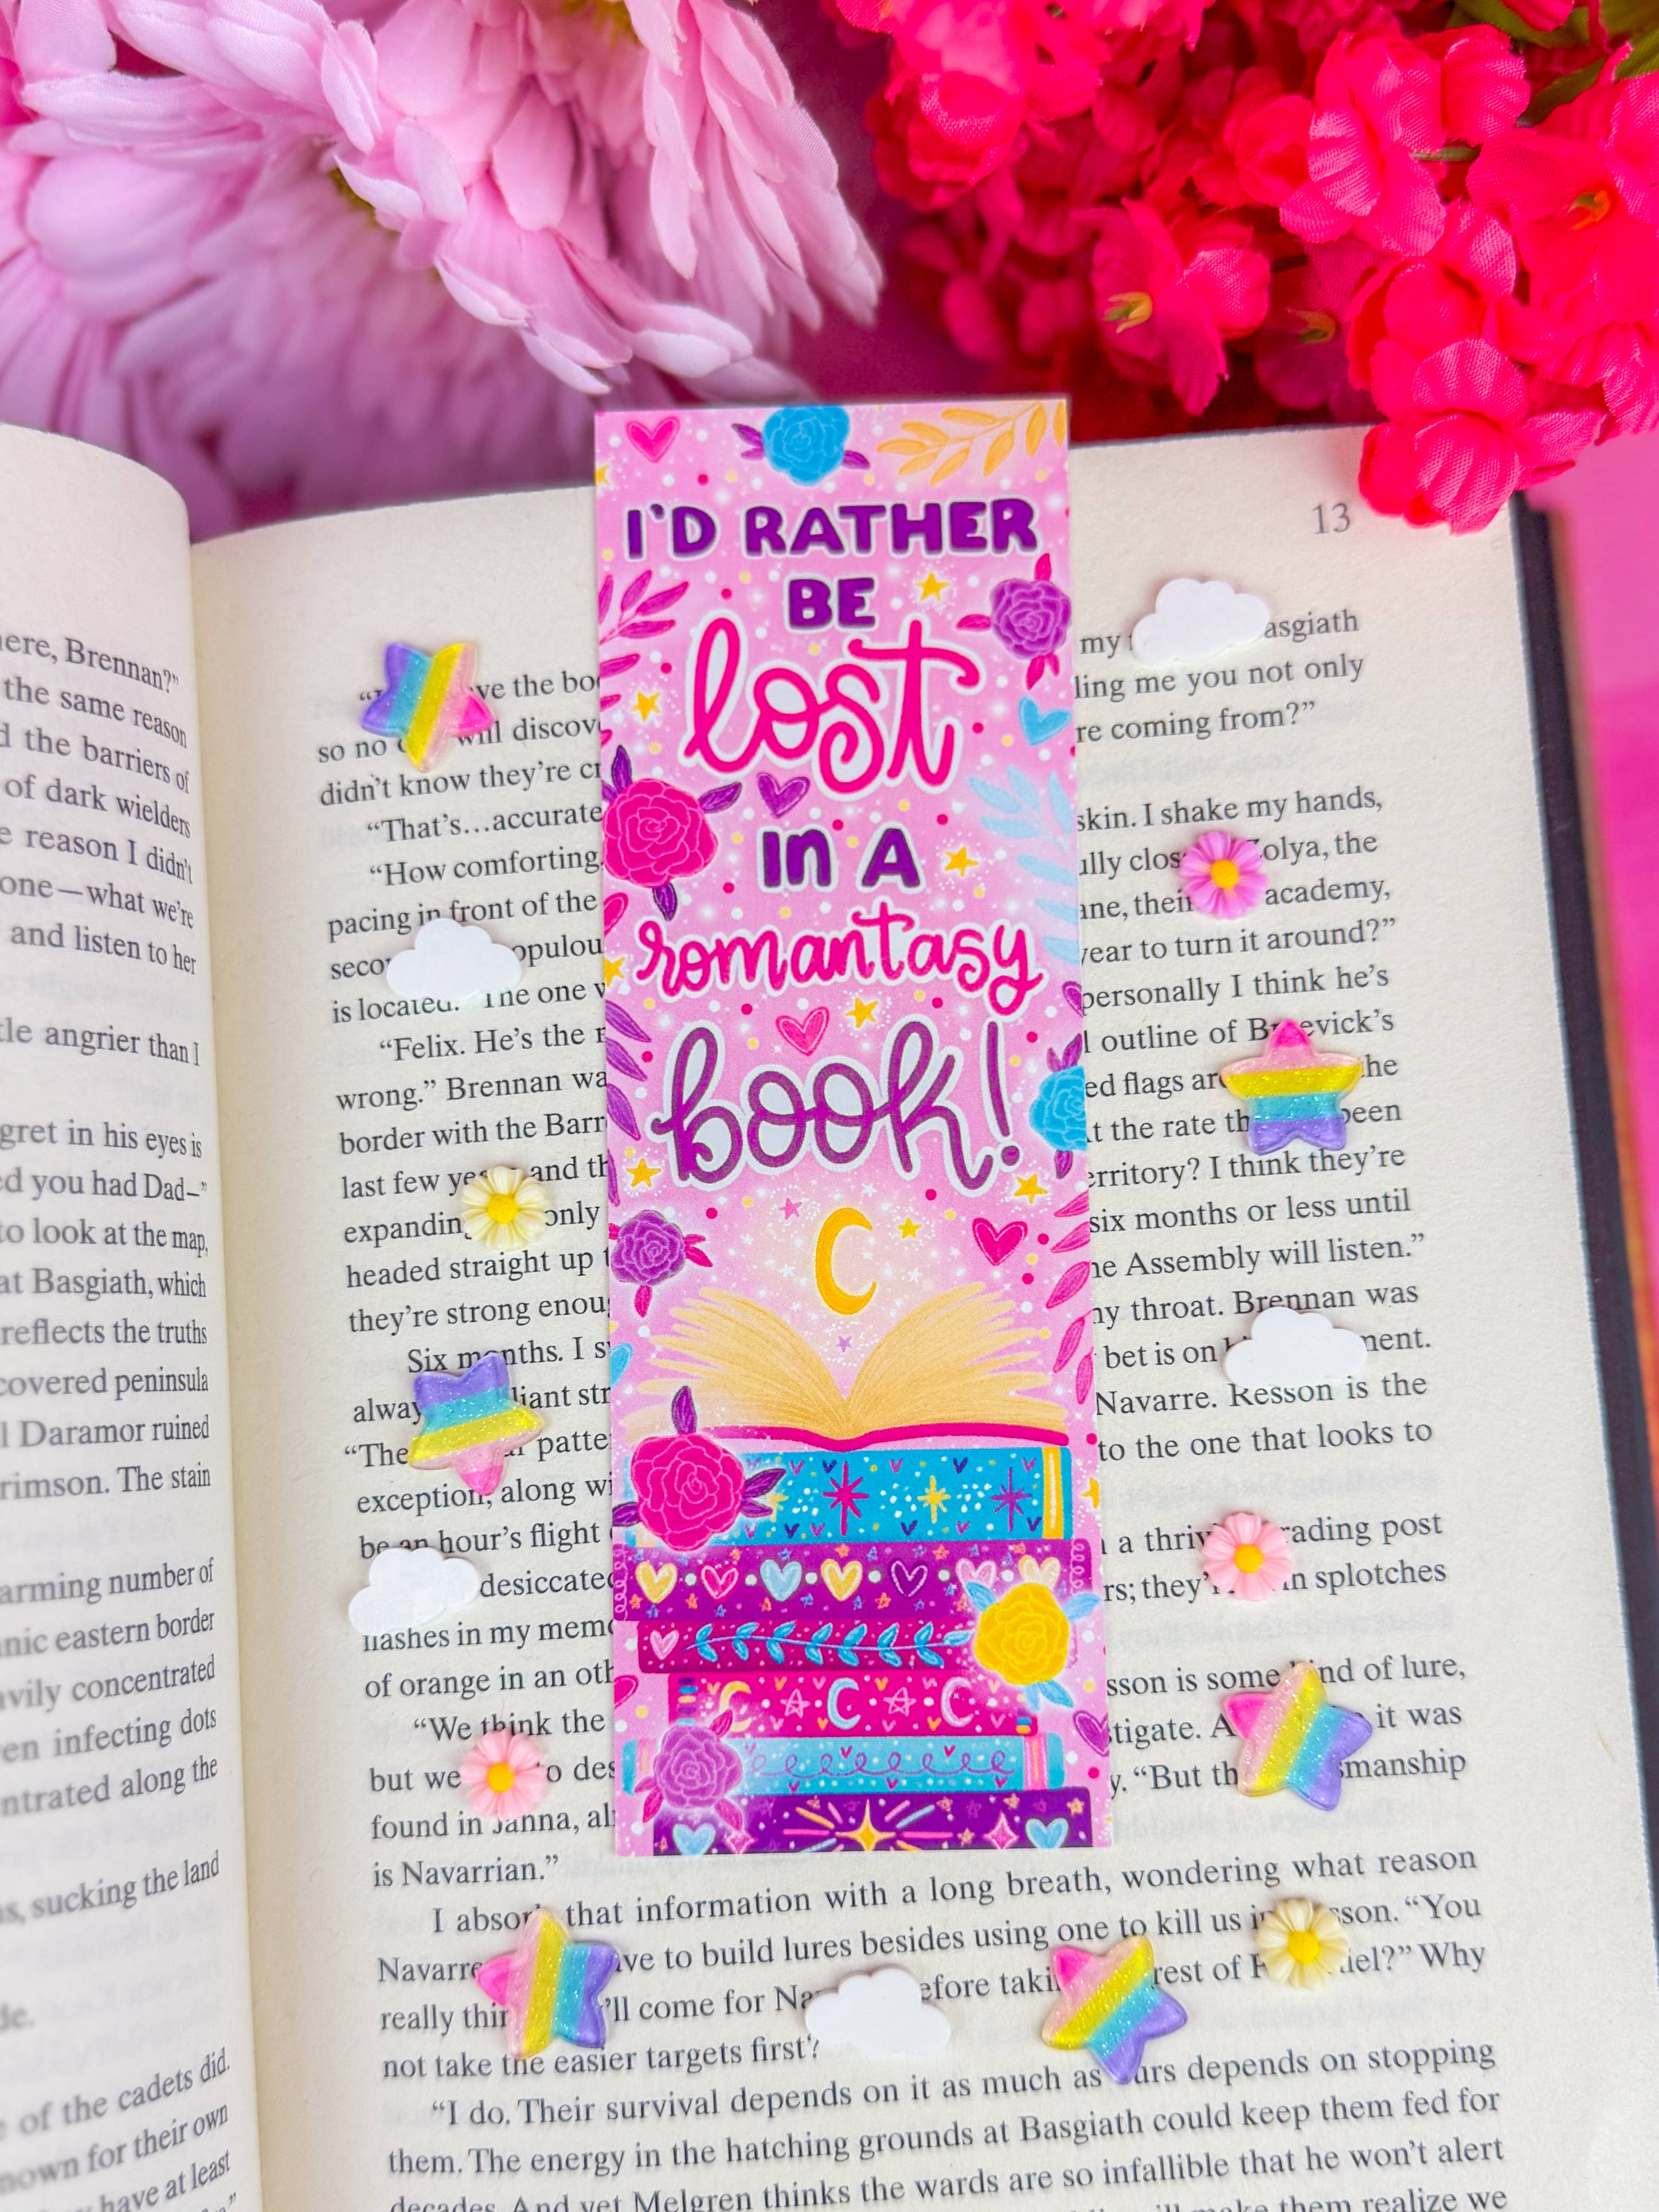 I'D RATHER
BE
lost
IN A
romantasy
book!
here, Brennan?”
the same reason
d the barriers of
of dark wielders
e reason I didn't
one—what we're
and listen to her
tle angrier than I
gret in his eyes is
ed you had Dad–”
to look at the map,
at Basgiath, which
reflects the truths
covered peninsula
l Daramor ruined
rimson. The stain
arming number of
nic eastern border
avily concentrated
en infecting dots
ntrated along the
s, sucking the land
de.
e of the cadets did.
nown for their own
have at least
13
ve the bo my asgiath
so no will discov ling me you not only
didn't know they're cr re coming from?”
“That's...accurate
“How comforting, skin. I shake my hands,
pacing in front of the ully clos Zolya, the
seco opulou ane, their academy,
is located. The one w year to turn it around?”
“Felix. He's the r personally I think he's
wrong.” Brennan wa l outline of Br evick's
border with the Barr ed flags are the
last few ye and th t the rate th been
expanding only erritory? I think they're
headed straight up t six months or less until
they're strong enou ne Assembly will listen.”
Six months. I s my throat. Brennan was
alway liant str bet is on ment.
“The patte Navarre. Resson is the
exception, along wi to the one that looks to
be an hour's flight
desiccated a thriv rading post
flashes in my memo rs; they' in splotches
of orange in an oth
“We think the sson is some kind of lure,
but we o des stigate. A it was
found in Janna, al y. “But th smanship
is Navarrian.”
I absorb that information with a long breath, wondering what reason
Navarre ve to build lures besides using one to kill us in sson. “You
really thin 'll come for Na efore taki rest of iel?” Why
not take the easier targets first?
“I do. Their survival depends on it as much as ours depends on stopping
them. The energy in the hatching grounds at Basgiath could keep them fed for
decades. And yet Melgren thinks the wards are so infallible that he won't alert
make them realize we